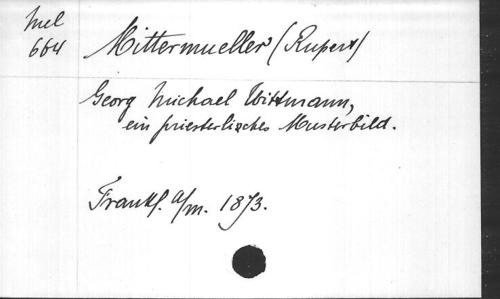 Mel
664
Mittermueller (Rupert)
Georg Michael Wittmann,
ein priesterliches Musterbild.
Frankf. a/m. 1873.